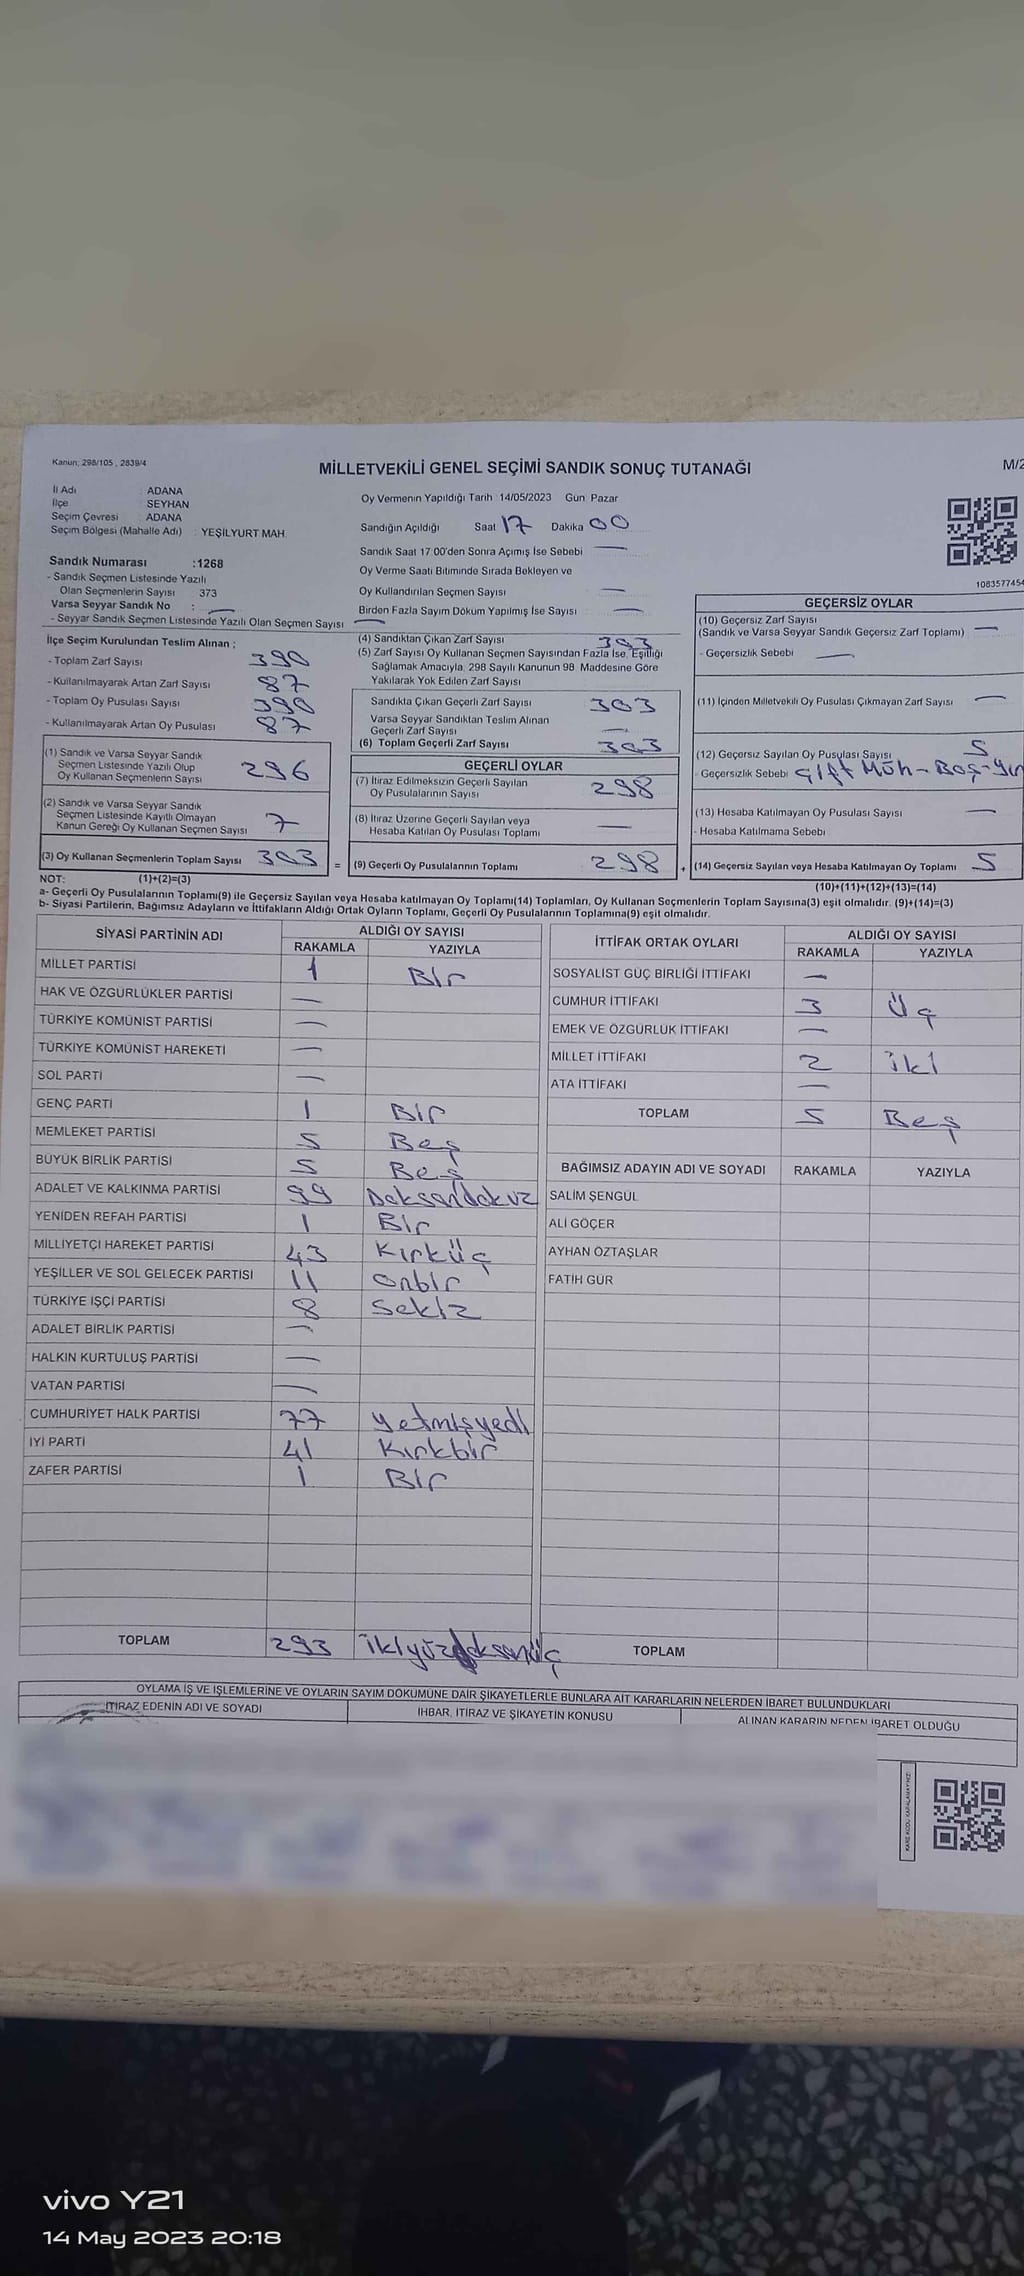 Kanun, 298/105 , 2839/4
MİLLETVEKİLİ GENEL SEÇİMİ SANDIK SONUÇ TUTANAĞI
M/2
İl Adı : ADANA
İlçe SEYHAN
Seçim Çevresi : ADANA
Seçim Bölgesi (Mahalle Adı) : YEŞİLYURT MAH.
Sandık Numarası :1268
- Sandık Seçmen Listesinde Yazılı
Olan Seçmenlerin Sayısı : 373
Varsa Seyyar Sandık No : —
- Seyyar Sandık Seçmen Listesinde Yazılı Olan Seçmen Sayısı —
Oy Vermenin Yapıldığı Tarih 14/05/2023 Gün Pazar
Sandığın Açıldığı Saat 17 Dakika 00
Sandık Saat 17:00'den Sonra Açımış İse Sebebi —
Oy Verme Saati Bitiminde Sırada Bekleyen ve
Oy Kullandırılan Seçmen Sayısı —
Birden Fazla Sayım Döküm Yapılmış İse Sayısı —
1083577454
İlçe Seçim Kurulundan Teslim Alınan ;
- Toplam Zarf Sayısı 390
- Kullanılmayarak Artan Zarf Sayısı 87
- Toplam Oy Pusulası Sayısı 390
- Kullanılmayarak Artan Oy Pusulası 87
(1) Sandık ve Varsa Seyyar Sandık
Seçmen Listesinde Yazılı Olup
Oy Kullanan Seçmenlerin Sayısı 296
(2) Sandık ve Varsa Seyyar Sandık
Seçmen Listesinde Kayıtlı Olmayan
Kanun Gereği Oy Kullanan Seçmen Sayısı 7
(3) Oy Kullanan Seçmenlerin Toplam Sayısı 303 =
(4) Sandıktan Çıkan Zarf Sayısı 303
(5) Zarf Sayısı Oy Kullanan Seçmen Sayısından Fazla İse, Eşitliği
Sağlamak Amacıyla, 298 Sayılı Kanunun 98 Maddesine Göre
Yakılarak Yok Edilen Zarf Sayısı
Sandıkta Çıkan Geçerli Zarf Sayısı 303
Varsa Seyyar Sandıktan Teslim Alınan
Geçerli Zarf Sayısı —
(6) Toplam Geçerli Zarf Sayısı 303
GEÇERLİ OYLAR
(7) İtiraz Edilmeksizin Geçerli Sayılan
Oy Pusulalarının Sayısı 298
(8) İtiraz Üzerine Geçerli Sayılan veya
Hesaba Katılan Oy Pusulası Toplamı —
(9) Geçerli Oy Pusulalarının Toplamı 298 +
GEÇERSİZ OYLAR
(10) Geçersiz Zarf Sayısı
(Sandık ve Varsa Seyyar Sandık Geçersiz Zarf Toplamı) —
- Geçersizlik Sebebi —
(11) İçinden Milletvekili Oy Pusulası Çıkmayan Zarf Sayısı —
(12) Geçersiz Sayılan Oy Pusulası Sayısı 5
- Geçersizlik Sebebi Çift Müh-Boş-
(13) Hesaba Katılmayan Oy Pusulası Sayısı —
- Hesaba Katılmama Sebebi
(14) Geçersiz Sayılan veya Hesaba Katılmayan Oy Toplamı 5
NOT: (1)+(2)=(3)
(10)+(11)+(12)+(13)=(14)
a- Geçerli Oy Pusulalarının Toplamı(9) ile Geçersiz Sayılan veya Hesaba katılmayan Oy Toplamı(14) Toplamları, Oy Kullanan Seçmenlerin Toplam Sayısına(3) eşit olmalıdır. (9)+(14)=(3)
b- Siyasi Partilerin, Bağımsız Adayların ve İttifakların Aldığı Ortak Oyların Toplamı, Geçerli Oy Pusulalarının Toplamına(9) eşit olmalıdır.
SİYASİ PARTİNİN ADI ALDIĞI OY SAYISI
RAKAMLA YAZIYLA
MİLLET PARTİSİ 1 Bir
HAK VE ÖZGÜRLÜKLER PARTİSİ —
TÜRKİYE KOMÜNİST PARTİSİ —
TÜRKİYE KOMÜNİST HAREKETİ —
SOL PARTİ —
GENÇ PARTİ 1 Bir
MEMLEKET PARTİSİ 5 Beş
BÜYÜK BİRLİK PARTİSİ 5 Beş
ADALET VE KALKINMA PARTİSİ 99 Doksandokuz
YENİDEN REFAH PARTİSİ 1 Bir
MİLLİYETÇİ HAREKET PARTİSİ 43 Kırküç
YEŞİLLER VE SOL GELECEK PARTİSİ 11 Onbir
TÜRKİYE İŞÇİ PARTİSİ 8 Sekiz
ADALET BİRLİK PARTİSİ —
HALKIN KURTULUŞ PARTİSİ —
VATAN PARTİSİ —
CUMHURİYET HALK PARTİSİ 77 Yetmişyedi
İYİ PARTİ 41 Kırkbir
ZAFER PARTİSİ 1 Bir
TOPLAM 293 ikiyüzdoksanüç
İTTİFAK ORTAK OYLARI ALDIĞI OY SAYISI
RAKAMLA YAZIYLA
SOSYALİST GÜÇ BİRLİĞİ İTTİFAKI —
CUMHUR İTTİFAKI 3 Üç
EMEK VE ÖZGÜRLÜK İTTİFAKI —
MİLLET İTTİFAKI 2 iki
ATA İTTİFAKI —
TOPLAM 5 Beş
BAĞIMSIZ ADAYIN ADI VE SOYADI RAKAMLA YAZIYLA
SALİM ŞENGÜL
ALİ GÖÇER
AYHAN ÖZTAŞLAR
FATİH GÜR
TOPLAM
OYLAMA İŞ VE İŞLEMLERİNE VE OYLARIN SAYIM DÖKÜMÜNE DAİR ŞİKAYETLERLE BUNLARA AİT KARARLARIN NELERDEN İBARET BULUNDUKLARI
İTİRAZ EDENİN ADI VE SOYADI İHBAR, İTİRAZ VE ŞİKAYETİN KONUSU ALINAN KARARIN NEDEN İBARET OLDUĞU
KARE KODU KARALAMAYINIZ!
vivo Y21
14 May 2023 20:18